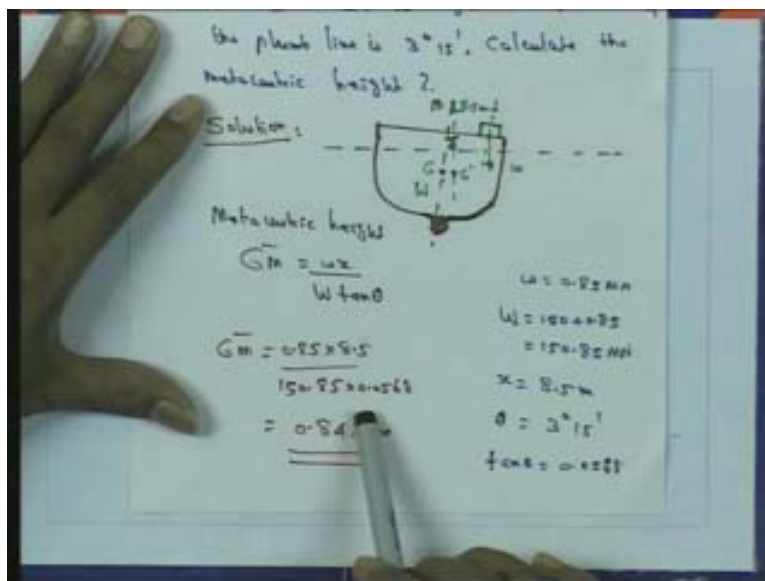 the plumb line is 3° 15'. Calculate the
metacentric height ?
Solution:
8.5m
G G'
W
w
Metacentric height
GM = wx
W tanθ
GM = 0.85x8.5
150.85x0.0568
= 0.84
w = 0.85 MN
W = 150+0.85
= 150.85 MN
x = 8.5m
θ = 3° 15'
tanθ = 0.0568